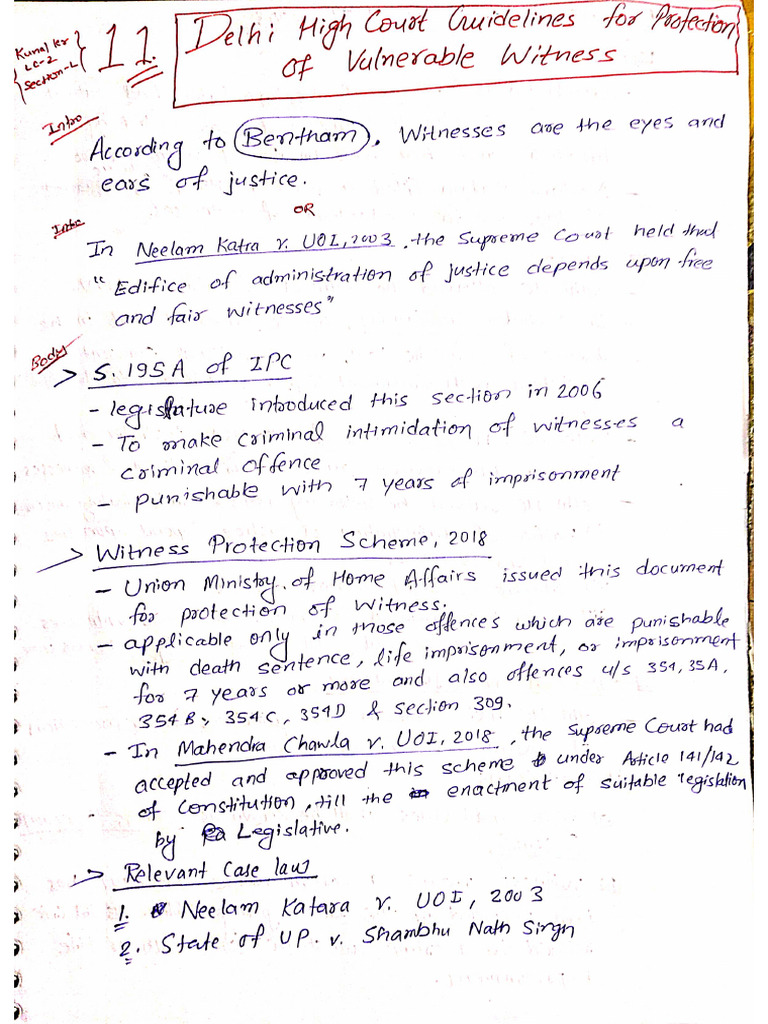 Kunal Kr
LC-2
Section-L
11.
Delhi High Court Guidelines for Protection
of Vulnerable Witness
Intro
According to Bentham, Witnesses are the eyes and
ears of justice.
OR
Intro
In Neelam Katra v. UOI, 2003, the Supreme Court held that
"Edifice of administration of justice depends upon free
and fair witnesses"
Body
> S. 195A of IPC
- legislature introduced this section in 2006
- To make criminal intimidation of witnesses a
criminal offence
- punishable with 7 years of imprisonment
> Witness Protection Scheme, 2018
- Union Ministry of Home Affairs issued this document
for protection of witness.
- applicable only in those offences which are punishable
with death sentence, life imprisonment, or imprisonment
for 7 years or more and also offences u/s 354, 35A,
354B, 354C, 354D & section 309.
- In Mahendra Chawla v. UOI, 2018, the Supreme Court had
accepted and approved this scheme under Article 141/142
of Constitution, till the enactment of suitable legislation
by Legislative.
> Relevant Case laws
1. Neelam Katara v. UOI, 2003
2. State of UP. v. Shambhu Nath Singh